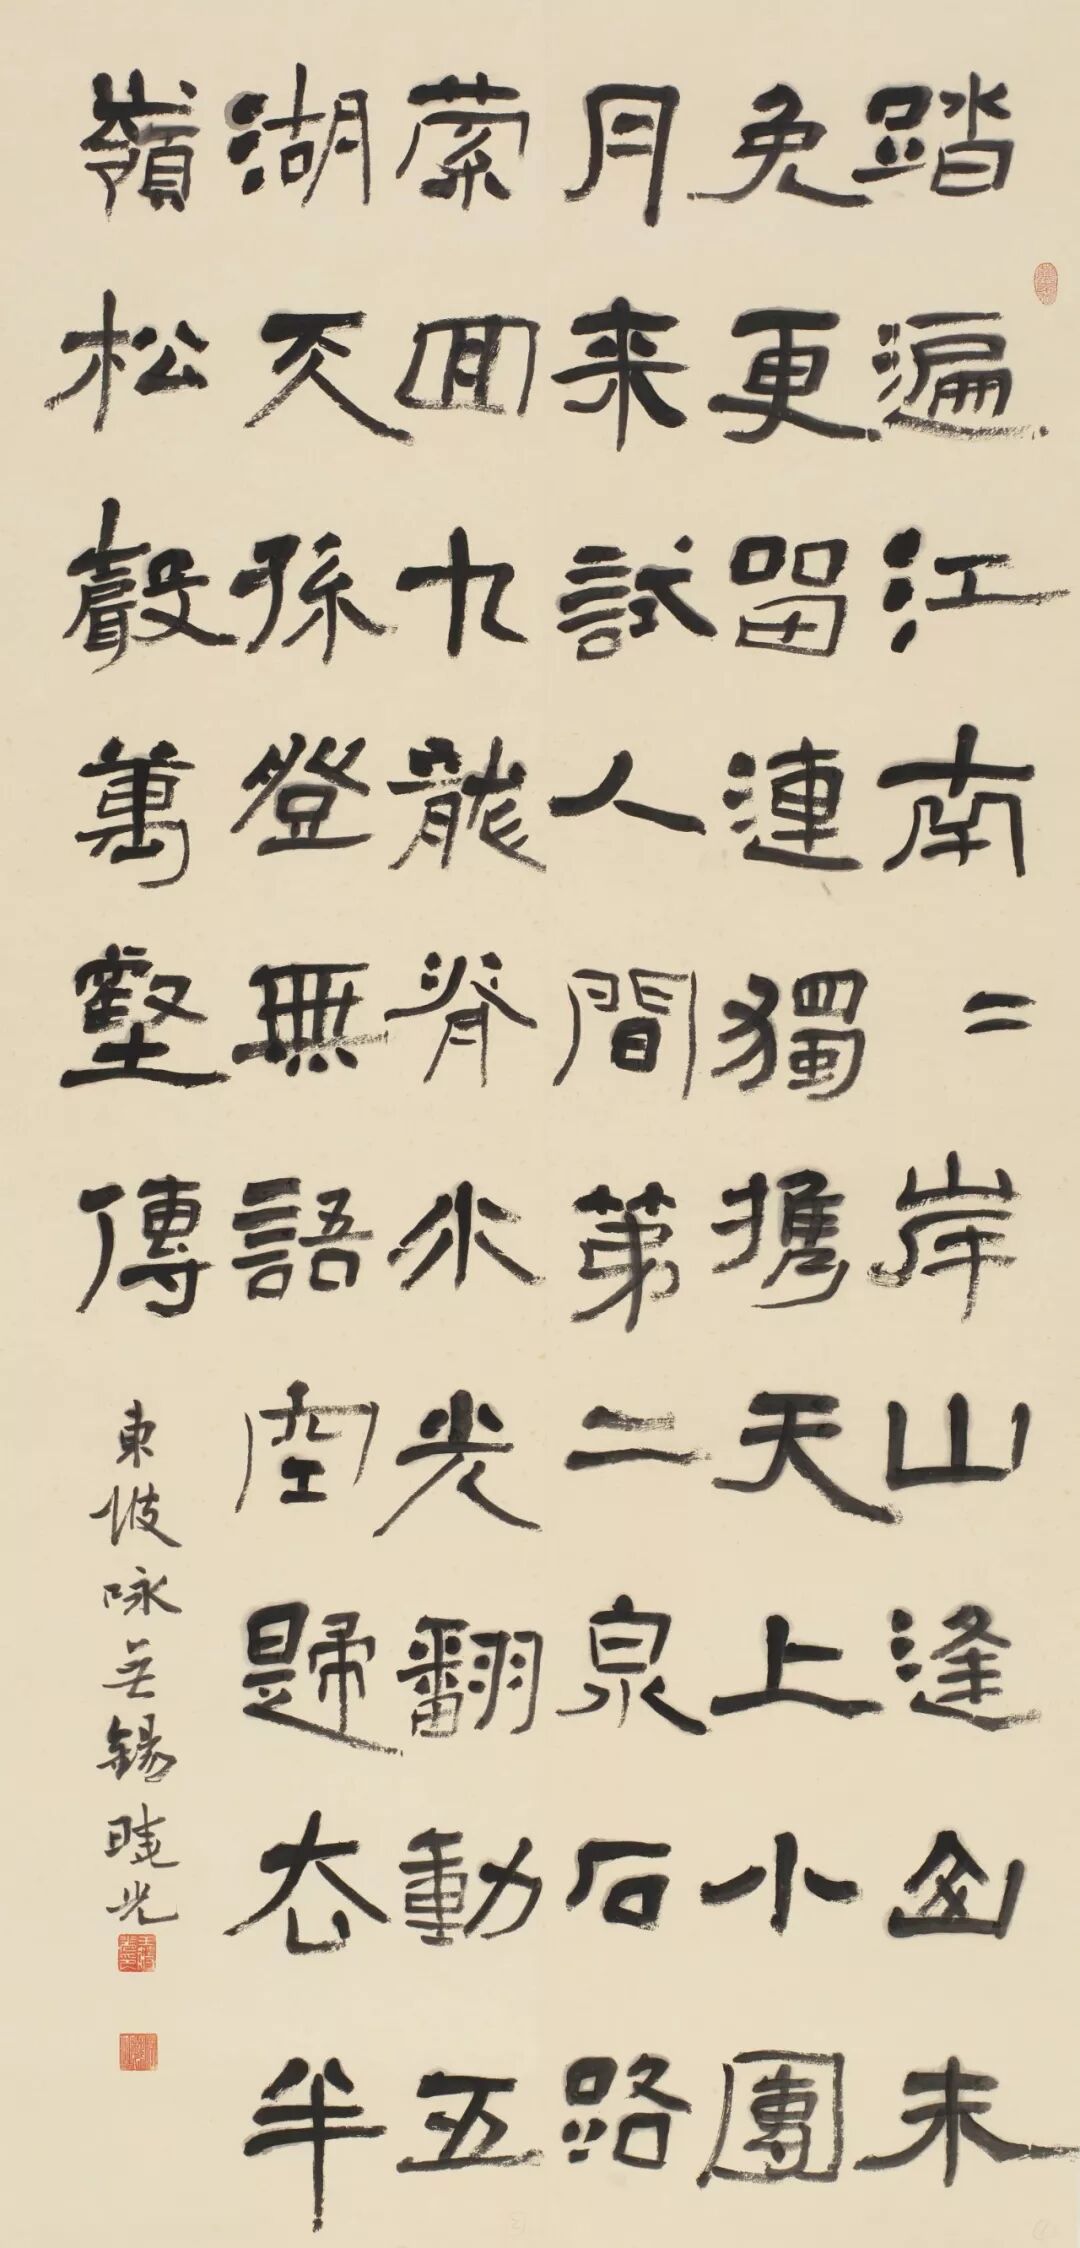 踏遍江南〻岸山逢山未
免更留連獨携天上小團
月来試人間第二泉石路
萦回九龍脊水光翻動五
湖天孫登無語空歸去半
嶺松聲萬壑傳
東坡咏无錫 曉光